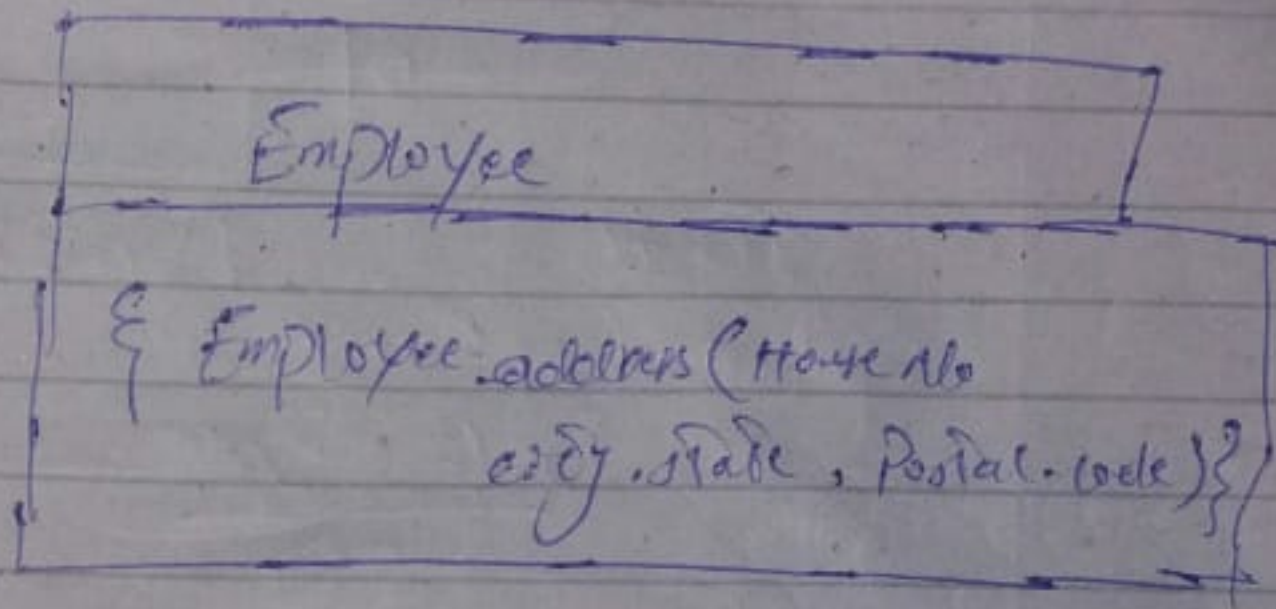 Employee
{ Employee.address (House No
city.state, Postal.code)}